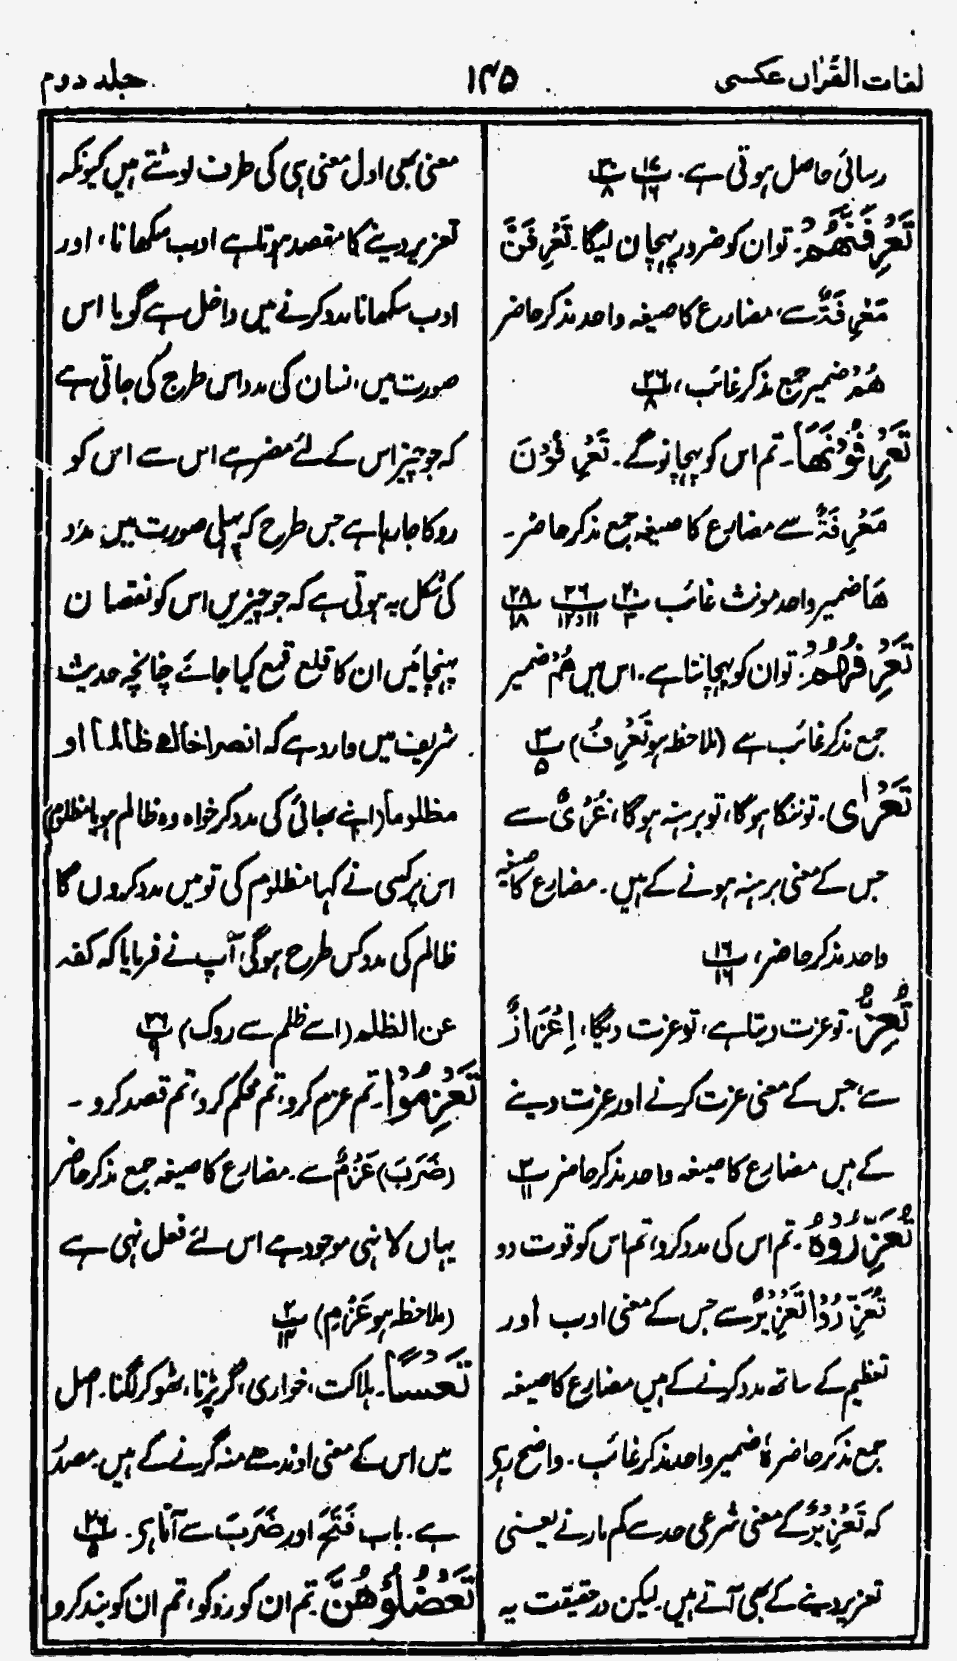 لغات القرآن عکسی
۱۴۵
جلد دوم
رسائی حاصل ہوتی ہے۔ پ۱۷/۱۶ پ۳۰/۸
تَعْرِفَنَّهُمْ۔ تو ان کو ضرور پہچان لیگا۔ تَعْرِفَنَّ
مَعْرِفَةٌ سے، مضارع کا صیغہ واحد مذکر حاضر
هُمْ ضمیر جمع مذکر غائب، پ۲۶/۸
تَعْرِفُوْنَهَا۔ تم اس کو پہچانو گے۔ تَعْرِفُوْنَ
مَعْرِفَةٌ سے مضارع کا صیغہ جمع مذکر حاضر۔
هَا ضمیر واحد مونث غائب پ۲۰/۳ پ۲۶/۱۱و۱۲ پ۲۸/۱۸
تَعْرِفُهُمْ۔ تو ان کو پہچانتا ہے۔ اس میں هُمْ ضمیر
جمع مذکر غائب ہے (ملاحظہ ہو تَعْرِفُ) پ۳/۵
تَعْرٰی۔ تو ننگا ہوگا، تو برہنہ ہوگا، عُرْیٌ سے
جس کے معنی برہنہ ہونے کے ہیں۔ مضارع کا صیغہ
واحد مذکر حاضر، پ۱۶/۱۶
تُعِزُّ۔ تو عزت دیتا ہے، تو عزت دیگا، اِعْزَازٌ
سے، جس کے معنی عزت کرنے اور عزت دینے
کے ہیں مضارع کا صیغہ واحد مذکر حاضر پ۳/۱۱
تُعَزِّرُوْهُ۔ تم اس کی مدد کرو، تم اس کو قوت دو
تُعَزِّرُوْا تَعْزِیْرٌ سے جس کے معنی ادب اور
تعظیم کے ساتھ مدد کرنے کے ہیں مضارع کا صیغہ
جمع مذکر حاضر ہٗ ضمیر واحد مذکر غائب۔ واضح رہے
کہ تَعْزِیْرٌ کے معنی شرعی حد سے کم مارنے یعنی
تعزیر دینے کے بھی آتے ہیں۔ لیکن درحقیقت یہ
معنی بھی اول معنی ہی کی طرف لوٹتے ہیں کیونکہ
تعزیر دینے کا مقصد ہوتا ہے ادب سکھانا، اور
ادب سکھانا مدد کرنے میں داخل ہے گویا اس
صورت میں انسان کی مدد اس طرح کی جاتی ہے
کہ جو چیز اس کے لئے مضر ہے اس سے اس کو
روکا جا رہا ہے جس طرح کہ پہلی صورت میں مدد
کی شکل یہ ہوتی ہے کہ جو چیزیں اس کو نقصان
پہنچائیں ان کا قلع قمع کیا جائے چنانچہ حدیث
شریف میں وارد ہے کہ انصر اخاک ظالماً او
مظلوماً (اپنے بھائی کی مدد کر خواہ وہ ظالم ہو یا مظلوم)
اس پر کسی نے کہا مظلوم کی تو میں مدد کروں گا
ظالم کی مدد کس طرح ہوگی آپ نے فرمایا کہ کفہ
عن الظلم (اسے ظلم سے روک) پ۲۶/۹
تَعْزِمُوْا۔ تم عزم کرو، تم محکم کرو، تم قصد کرو۔
(ضَرَبَ) عَزْمٌ سے۔ مضارع کا صیغہ جمع مذکر حاضر
یہاں لا نہی موجود ہے اس لئے فعل نہی ہے
(ملاحظہ ہو عَزْمٌ) پ۲/۱۴
تَعْسًا۔ ہلاکت، خواری، گر پڑنا، ٹھوکر لگنا۔ اصل
میں اس کے معنی اوندھے منہ گرنے کے ہیں۔ مصدر
ہے۔ باب فَتَحَ اور ضَرَبَ سے آتا ہے۔ پ۲۶/۵
تَعْضُلُوْهُنَّ۔ تم ان کو روکو، تم ان کو بند کرو